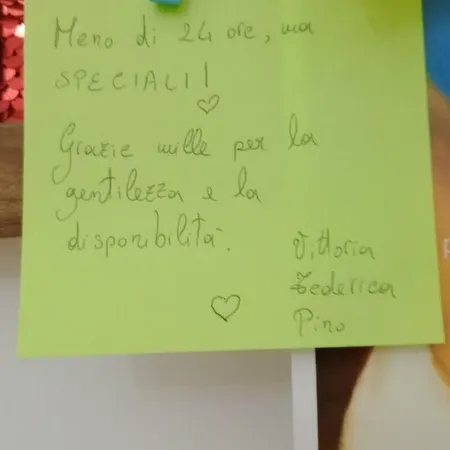 Meno di 24 ore, ma
SPECIALI!
Grazie mille per la
gentilezza e la
disponibilità.
Vittoria
Federica
Pino